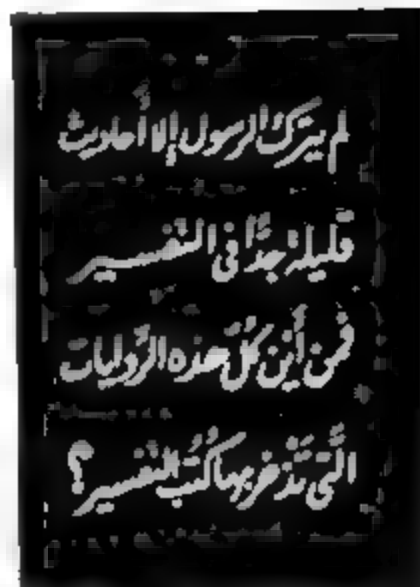 لم يترك الرسول إلا أحاديث
قليلة جدًّا في التفسير
فمن أين كُلّ هذه الرّوايات
الَّتى تَذْخر بها كُتُب التفسير؟